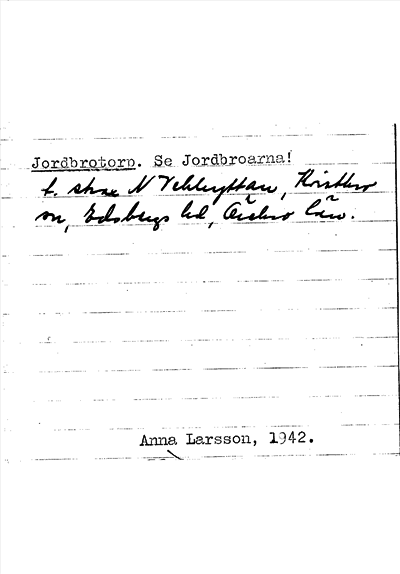 Jordbrotorp. Se Jordbroarna!
t. strax N Velhyttan, Kvistbro
sn, Edsbergs hd, Örebro län.
Anna Larsson, 1942.